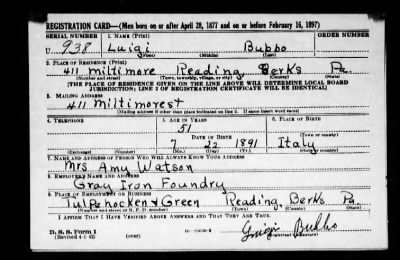 REGISTRATION CARD—(Men born on or after April 28, 1877 and on or before February 16, 1897)
SERIAL NUMBER 1. NAME (Print) ORDER NUMBER
U 938 Luigi Bubbo
(First) (Middle) (Last)
2. PLACE OF RESIDENCE (Print)
411 miltimore Reading Berks Pa.
(Number and street) (Town, township, village, or city) (County) (State)
[THE PLACE OF RESIDENCE GIVEN ON THE LINE ABOVE WILL DETERMINE LOCAL BOARD
JURISDICTION; LINE 2 OF REGISTRATION CERTIFICATE WILL BE IDENTICAL]
3. MAILING ADDRESS
411 miltimorest
[Mailing address if other than place indicated on line 2. If same insert word same]
4. TELEPHONE 5. AGE IN YEARS 6. PLACE OF BIRTH
51
DATE OF BIRTH (Town or county)
7 22 1891 Italy
(Mo.) (Day) (Yr.) (State or country)
7. NAME AND ADDRESS OF PERSON WHO WILL ALWAYS KNOW YOUR ADDRESS
Mrs Amy Watson
8. EMPLOYER'S NAME AND ADDRESS
Gray Iron Foundry
9. PLACE OF EMPLOYMENT OR BUSINESS
Tulpehocken & Green Reading, Berks Pa
(Number and street or R. F. D. number) (Town) (County) (State)
I AFFIRM THAT I HAVE VERIFIED ABOVE ANSWERS AND THAT THEY ARE TRUE.
D. S. S. Form 1
(Revised 4-1-42) (over)
Luigi Bubbo